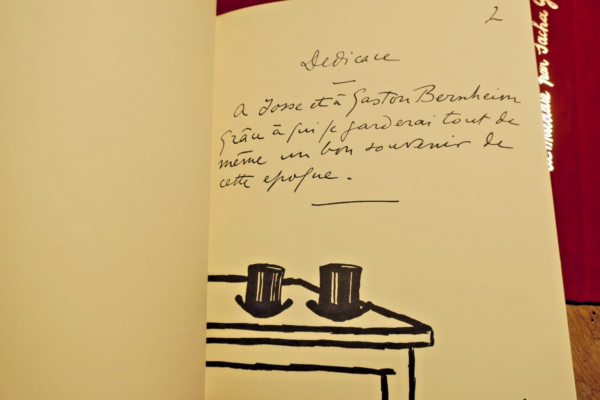 2
Dedicace
A Josse et à Gaston Bernheim
Grâce à qui je garderai tout de
même un bon souvenir de
cette epoque.
par Sacha G